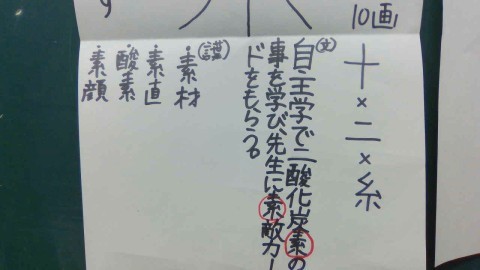 10画
十×二×糸
(文)
自主学で二酸化炭素の
事を学び、先生に素敵カー
ドをもらう。
(語)
・素材
・素直
・酸素
・素顔
す